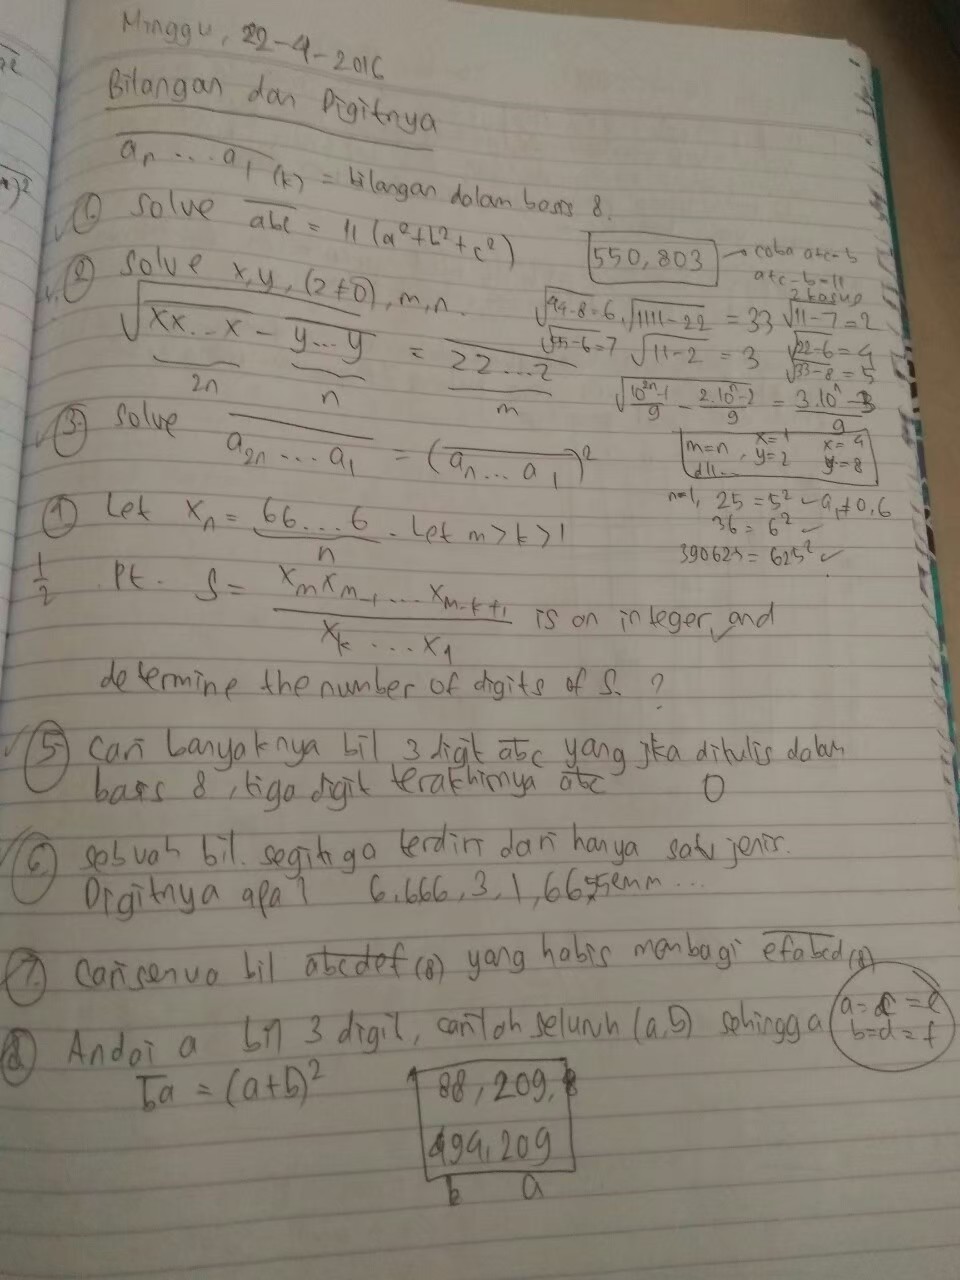 Minggu, 22-4-2016
Bilangan dan Digitnya
an ... a1 (k) = bilangan dalam basis 8.
1. solve abc = 11 (a²+b²+c²)
550, 803 → coba a+c=b
a+c-b=11
2 kasus
2. solve x, y, (z≠0), m, n.
√xx...x - y...y = zz...z
2n n m
√44-8=6, √1111-22 = 33 √11-7=2
√55-6=7 √11-2 = 3 √22-6=4
√33-8=5
√10²ⁿ-1/9 - 2.10ⁿ-2/9 = 3.10ⁿ-3/9
m=n, x=1 x=4
dll... y=2 y=8
3. solve a2n ... a1 = (an ... a1)²
n=1, 25 = 5² - a1≠0,6
36 = 6² ✓
390625 = 625² ✓
4. Let xn = 66...6. Let m>k>1
n
1/2 Pt. S = xm xm-1 ... xm-k+1 / xk ... x1 is an integer, and
determine the number of digits of S. ?
5. Cari banyaknya bil 3 digit abc yang jika ditulis dalam
basis 8, tiga digit terakhirnya abc 0
6. sebuah bil. segitiga terdiri dari hanya satu jenis.
Digitnya apa? 6, 666, 3, 1, 66, 55
7. Cari semua bil abcdef (8) yang habis membagi efabcd (8)
a=c=e
b=d=f
8. Andai a bil 3 digit, carilah seluruh (a,b) sehingga
ba = (a+b)²
88, 209,
494, 209
b a